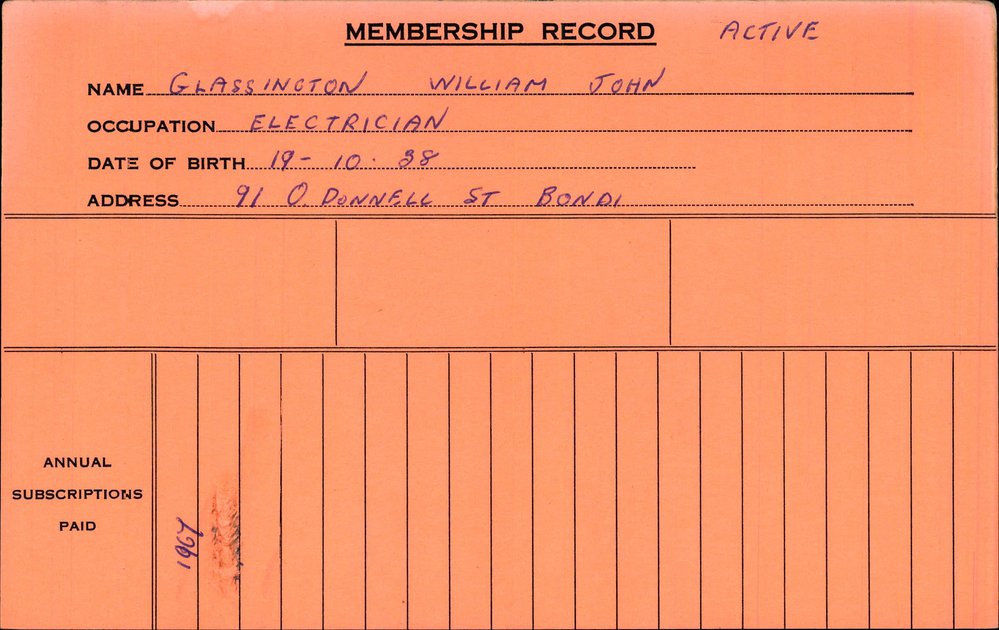 MEMBERSHIP RECORD ACTIVE
NAME GLASSINGTON WILLIAM JOHN
OCCUPATION ELECTRICIAN
DATE OF BIRTH 19-10.38
ADDRESS 91 O DONNELL ST BONDI
ANNUAL
SUBSCRIPTIONS
PAID
1967